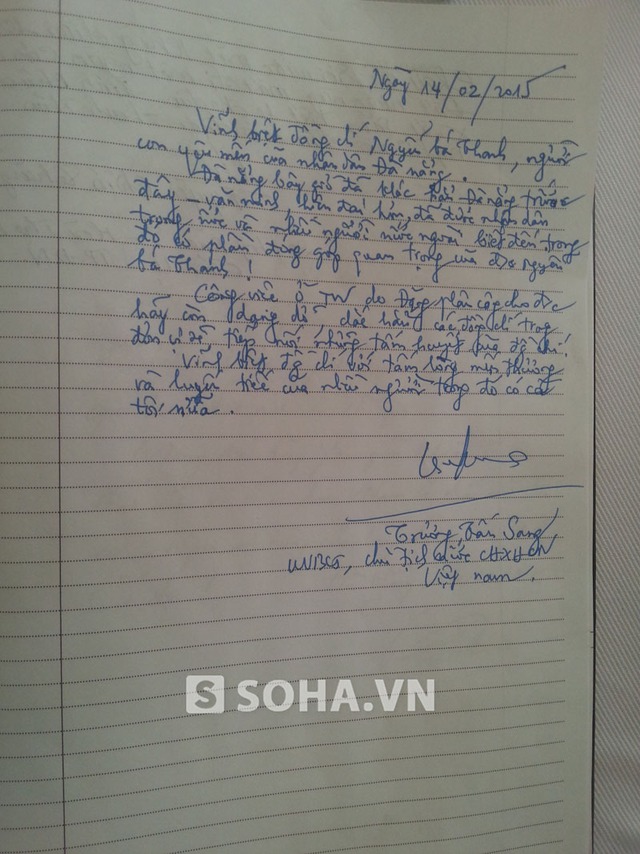 Ngày 14/02/2015
Vĩnh biệt đồng chí Nguyễn bá Thanh, người
con yêu mến của nhân dân Đà nẵng.
Đà nẵng bây giờ đã khác hẳn Đà nẵng trước
đây - văn minh, hiện đại hơn, đã được nhân dân
trong nước và nhiều người nước ngoài biết đến trong
đó có phần đóng góp quan trọng của đ/c Nguyễn
bá Thanh!
Công việc ở TW do Đảng phân công cho đ/c
hãy còn dang dở, các đồng chí trong
đơn vị sẽ tiếp nối những tâm huyết của đ/c.
Vĩnh biệt đ/c với tấm lòng mến thương
và luyến tiếc của nhiều người trong đó có cả
tôi nữa.
Trương Tấn Sang
UVBCT, chủ tịch nước CHXHCN
Việt nam.
SOHA.VN